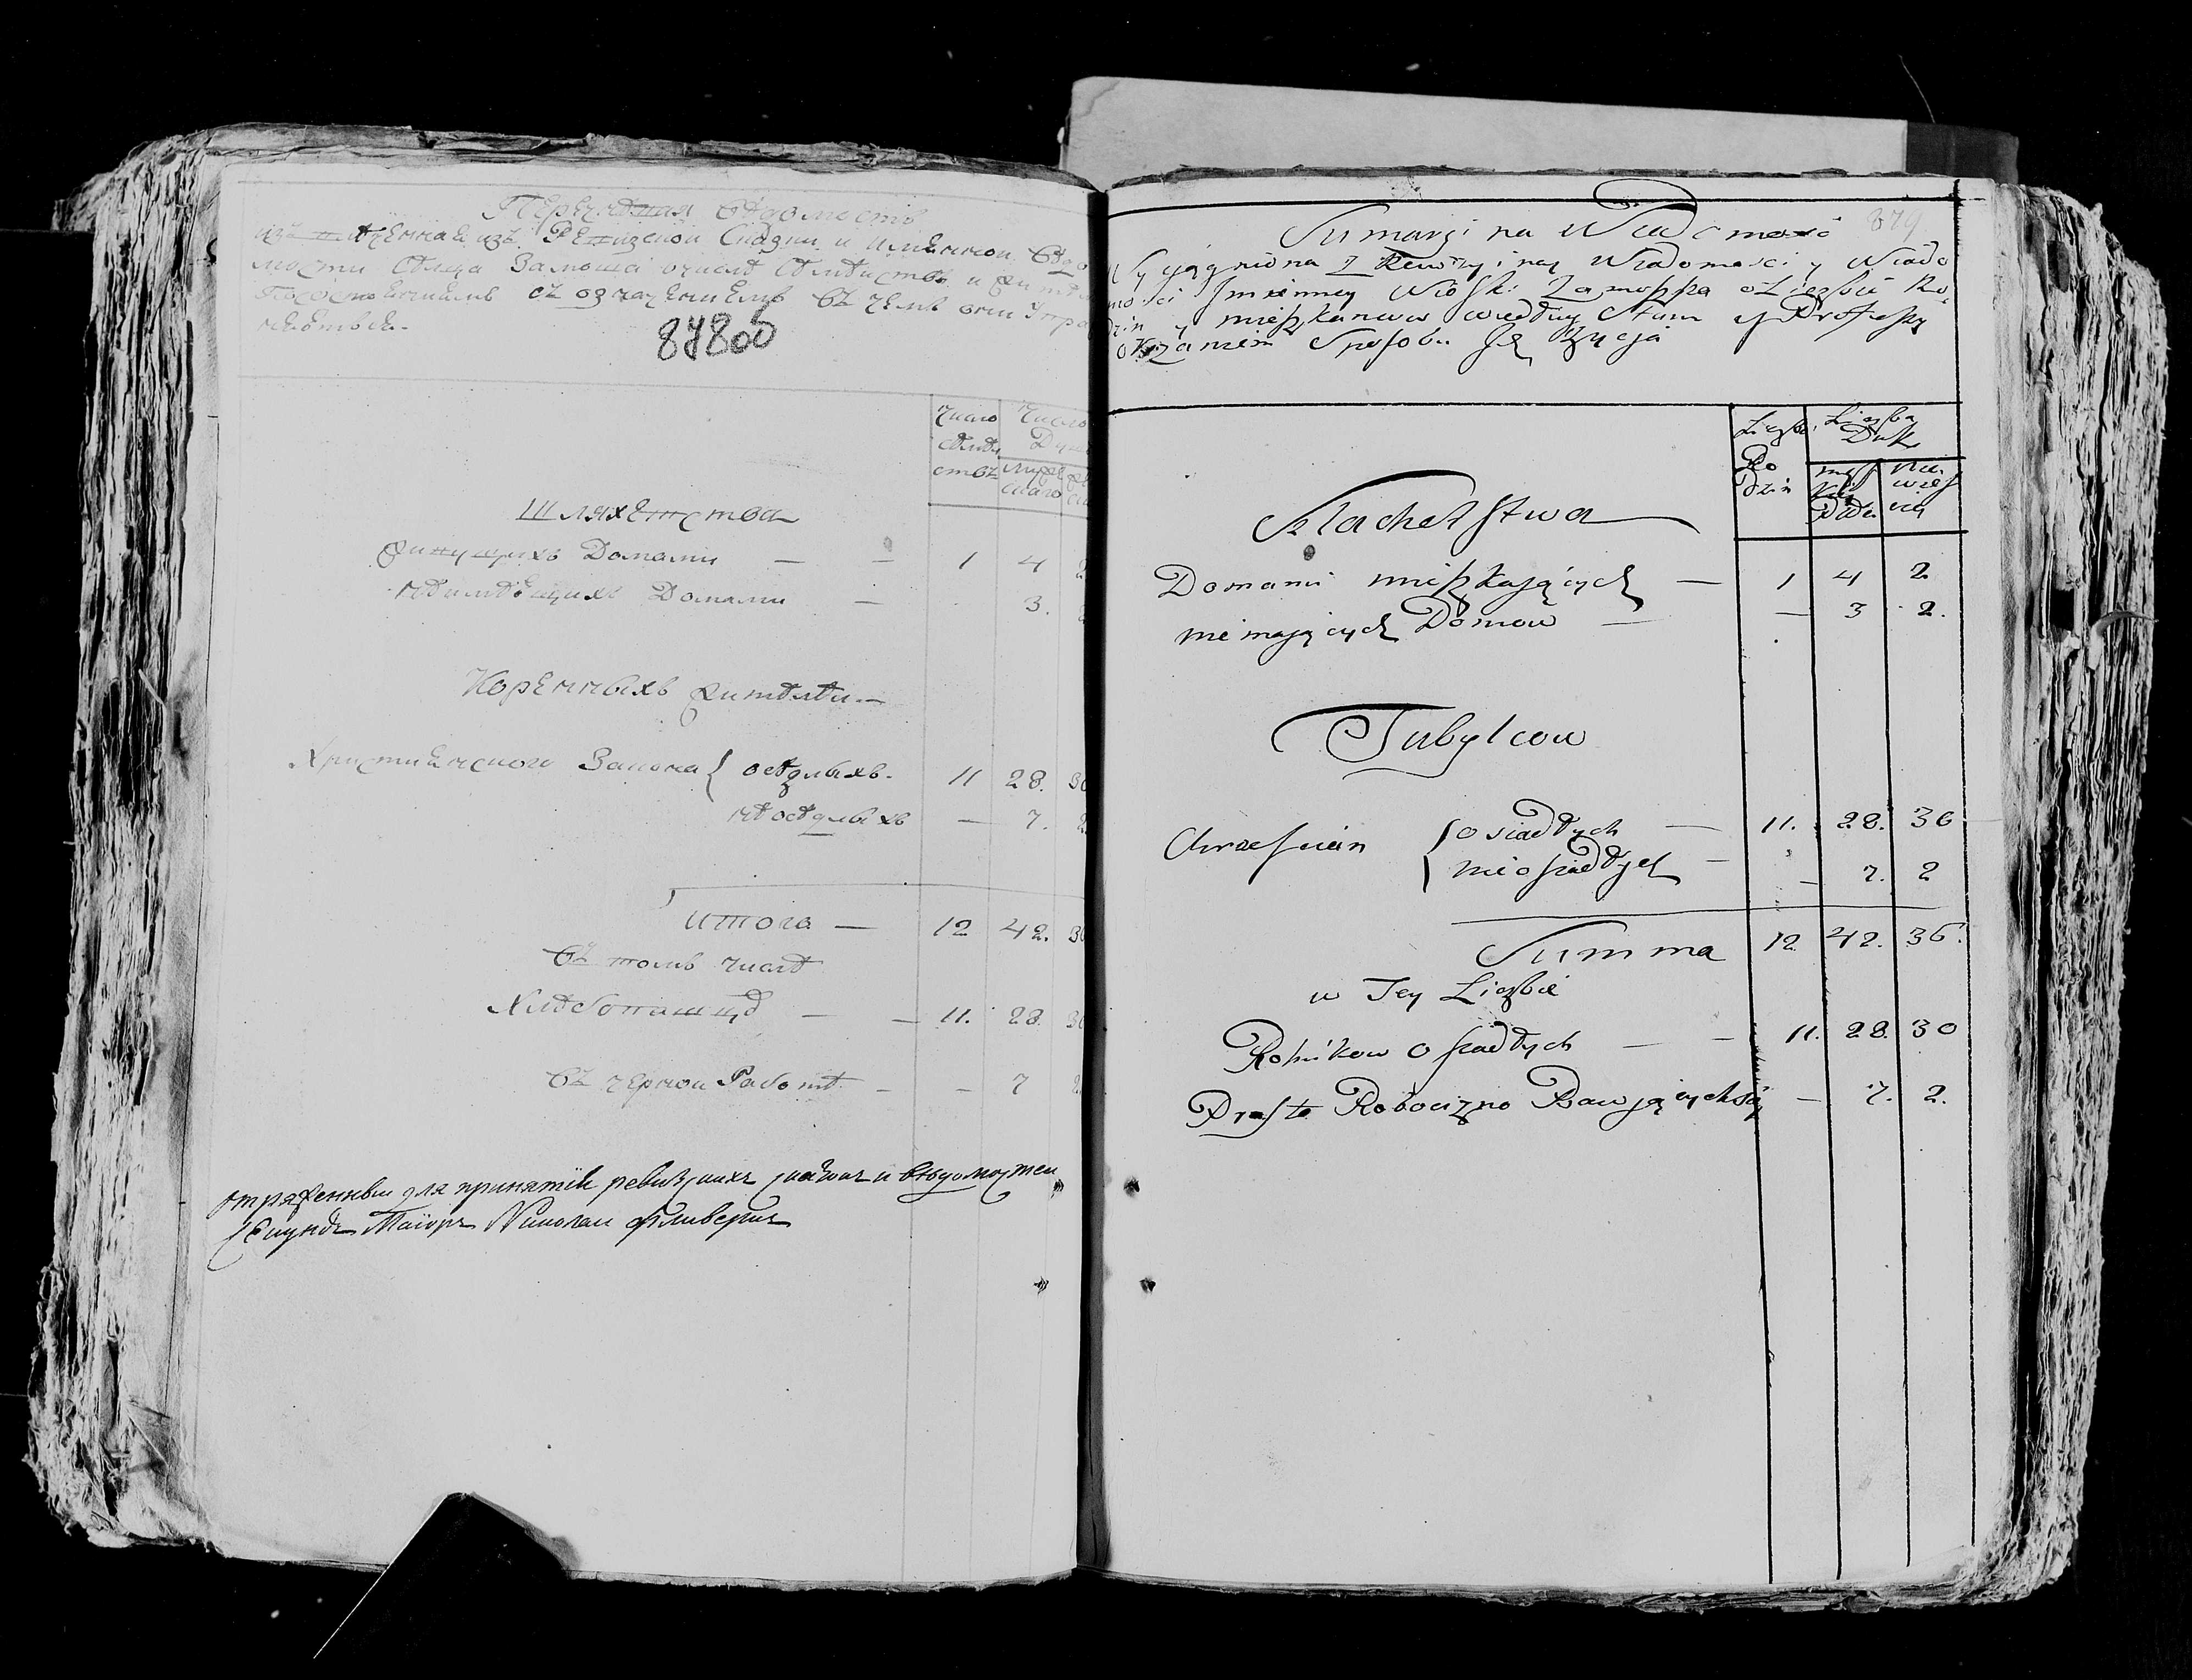 Перечневая Вѣдомость
изъ Ревизской Сказки и именной Вѣдо
мости Селца Замоша о числѣ Семействъ и жител
съ означениемъ въ чемъ они Упра
878об
Число Семѣй ствъ
Число Душ
мужеска
Шляхетства
живущихъ Домами — — 1 4 2
неимѣющихъ Домами — 3. 2
Коренныхъ жителей —
Християнского Закона { осѣдлыхъ. 11 28. 30
неосѣдлыхъ — 7. 2
итого — 12 42. 36
въ томъ числѣ
Хлѣбопашцѣ — — 11. 28. 30
въ черной Работѣ — — 7 2
отряженный для принятія ревизскихъ сказокъ и вѣдомостей
Секундъ Маіоръ Николай
879
Sumaryina Wiadomość
Wyciągniona z Rewizyiney Wiadomosci y Wiado
mosci Jmienney Wioski Zamoszsza o Liczbie Ro
dzin y mieszkancow według Stanu y Professyi
okazaniem Sposobu Jch Zycia
Liczba Ro dzin
Liczba Dusz
męs kiey Płci
Nie wies ciey
Szlachetstwa
Domami mieszkających — 1 4 2
nie mających Domow — — 3 2.
Tubylcow
Chrzescian { osiadłych — 11. 28. 30
nieosiadłych — — 7. 2
Summa 12 42. 36.
w Tey Liczbie
Rolnikow osiadłych — — 11. 28. 30
Prosto Robocizno Bawjących się — 7. 2.